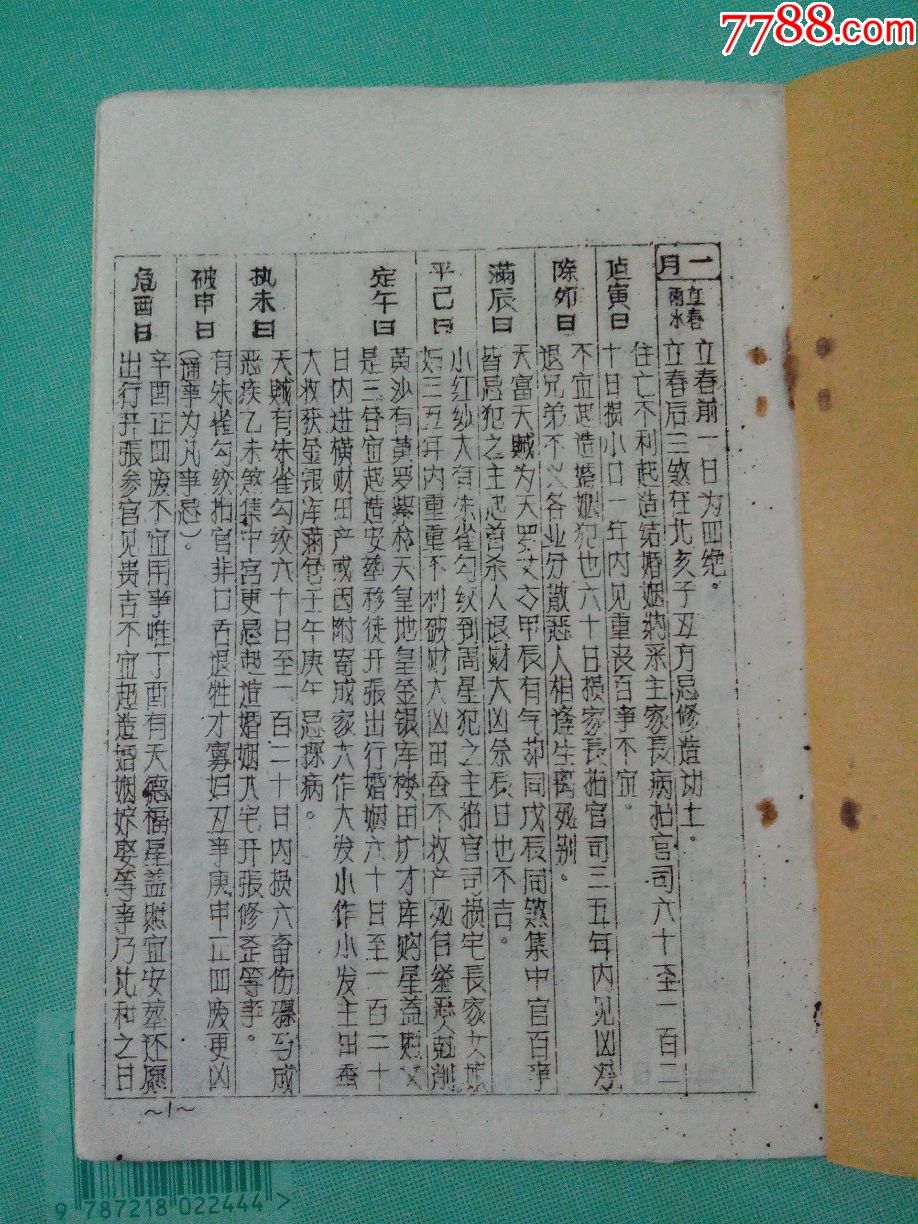 7788.com
一月
立春
雨水
立春前一日为四绝。
立春后三煞在北亥子丑方忌修造动土。
值寅日
往亡不利起造结婚姻纳采主家长病招官司六十至一百二
十日损小口一年内见重丧百事不宜。
除卯日
不宜起造婚姻犯也六十日损家長招官司三五年内见凶
退兄弟不义各业分散恶人相逢生离死别。
满辰日
天富天贼为天罗又名甲辰有气却同戊辰同煞集中宫百事
皆忌犯之主起兽杀人退财大凶余辰日也不吉。
平己日
小红纱大有朱雀勾绞到周星犯之主招官司损宅長家女
三五年内重重不利破财大凶田蚕不收产死自缢受
定午日
黄沙有黄罗紫檀天皇地皇金银库楼田广才库购星益照又
是三合宜起造安葬移徒开張出行婚姻六十日至一百二十
日内进横财田产或因附寄成家大作大发小作小发主田蚕
大收获金银库满仓壬午庚午忌探病。
执未日
天贼有朱雀勾绞六十日至一百二十日内损六畜伤 成
恶疾乙未煞集中宫更忌起造婚姻入宅开張修造等事。
破申日
有朱雀勾绞招官非口舌退牲才寡妇丑事庚申正四废更凶
(通事为凡事忌)。
危酉日
辛酉正四废不宜用事唯丁酉有天德福星益照宜安葬还愿
出行开張参官见贵吉不宜起造婚姻嫁娶等事乃比和之日
~1~
9 787218 022444 >